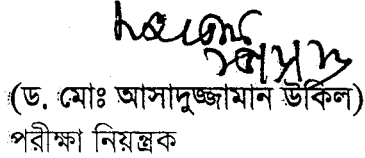 (ড. মোঃ আসাদুজ্জামান উকিল)
পরীক্ষা নিয়ন্ত্রক